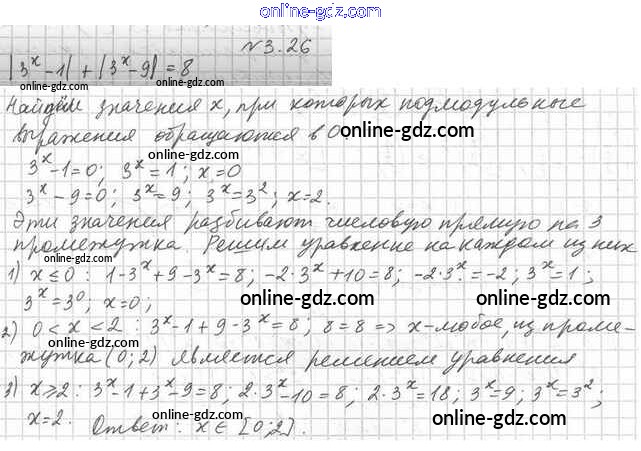 online-gdz.com
№3.26
|3ˣ-1| + |3ˣ-9| = 8
online-gdz.com
online-gdz.com
Найдём значения x, при которых подмодульные
выражения обращаются в 0.
online-gdz.com
3ˣ-1=0; 3ˣ=1; x=0
online-gdz.com
3ˣ-9=0; 3ˣ=9; 3ˣ=3²; x=2.
online-gdz.com
Эти значения разбивают числовую прямую на 3
промежутка. Решим уравнение на каждом из них
1) x≤0: 1-3ˣ+9-3ˣ=8; -2·3ˣ+10=8; -2·3ˣ=-2; 3ˣ=1;
3ˣ=3⁰; x=0;
online-gdz.com
online-gdz.com
2) 0<x<2: 3ˣ-1+9-3ˣ=8; 8=8 => x-любое, из проме-
online-gdz.com
online-gdz.com
жутка (0;2) является решением уравнения
3) x≥2: 3ˣ-1+3ˣ-9=8; 2·3ˣ-10=8; 2·3ˣ=18; 3ˣ=9; 3ˣ=3²;
online-gdz.com
x=2.
Ответ: x∈[0;2].
online-gdz.com
online-gdz.com